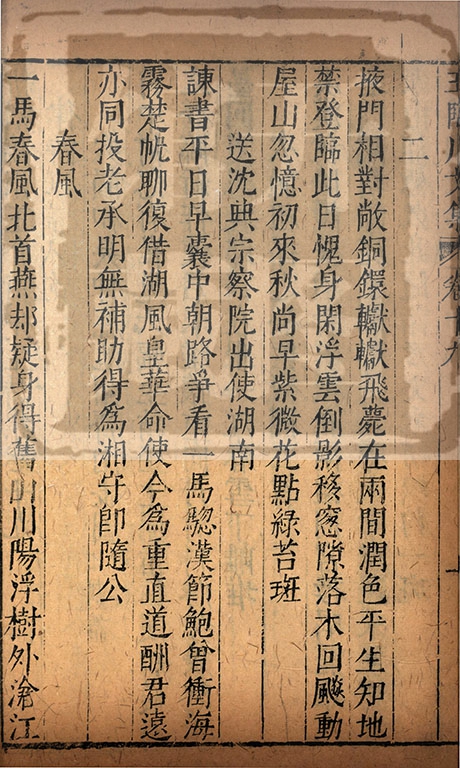 王臨川文集卷十九
二
掖門相對敞銅鐶飛甍在兩間潤色平生知地
禁登臨此日愧身閑浮雲倒影移窓隙落木回飈動
屋山忽憶初來秋尚早紫微花點綠苔斑
送沈興宗察院出使湖南
諫書平日皁囊中朝路爭看一馬驄漢節飽曾衝海
霧楚帆聊復借湖風皇華命使今爲重直道酬君遠
亦同投老承明無補助得爲湘守卽隨公
春風
一馬春風北首燕却疑身得舊山川陽浮樹外滄江